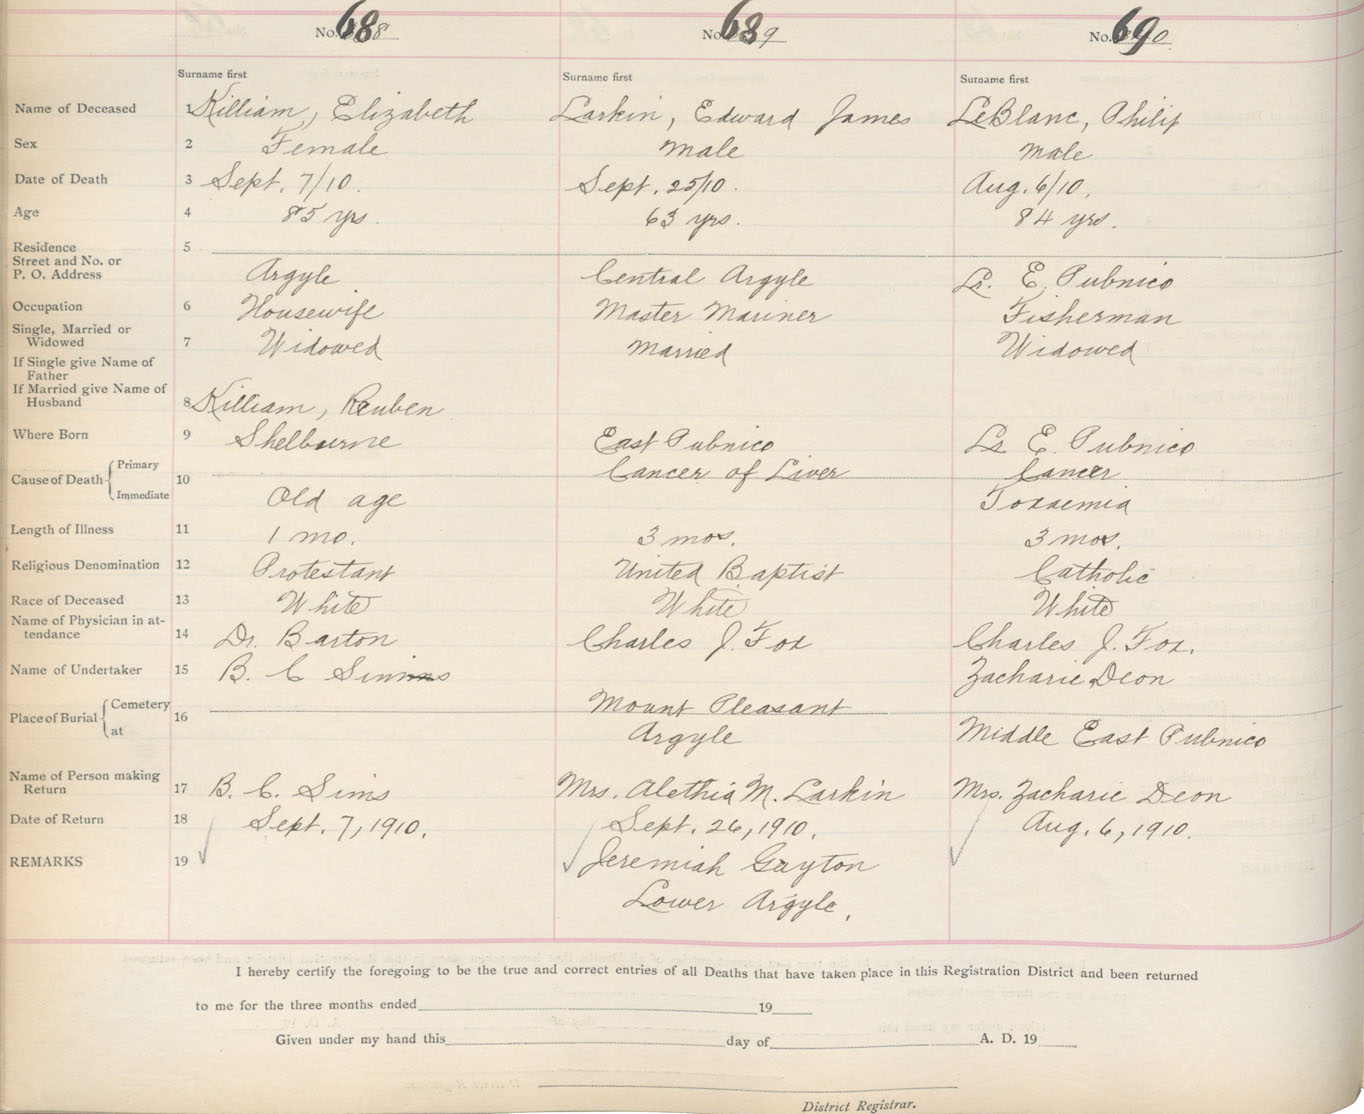 No. 688 No. 689 No. 690
Surname first Surname first Surname first
Name of Deceased 1 Killiam, Elizabeth Larkin, Edward James LeBlanc, Philip
Sex 2 Female Male Male
Date of Death 3 Sept. 7/10. Sept. 25/10. Aug. 6/10.
Age 4 85 yrs. 63 yrs. 84 yrs.
Residence 5
Street and No. or
P. O. Address Argyle Central Argyle Lr. E. Pubnico
Occupation 6 Housewife Master Mariner Fisherman
Single, Married or
Widowed 7 Widowed Married Widowed
If Single give Name of
Father
If Married give Name of
Husband 8 Killiam, Reuben
Where Born 9 Shelbourne East Pubnico Lr. E. Pubnico
Cause of Death Primary 10 Cancer of Liver Cancer
Immediate Old age Toxaemia
Length of Illness 11 1 mo. 3 mos. 3 mos.
Religious Denomination 12 Protestant United Baptist Catholic
Race of Deceased 13 White White White
Name of Physician in at-
tendance 14 Dr. Barton Charles J. Fox Charles J. Fox.
Name of Undertaker 15 B. C Simms Zacharie Deon
Place of Burial Cemetery 16 Mount Pleasant
at Argyle Middle East Pubnico
Name of Person making
Return 17 B. C. Sims Mrs. Alethia M. Larkin Mrs. Zacharie Deon
Date of Return 18 Sept. 7, 1910. Sept. 26, 1910. Aug. 6, 1910.
REMARKS 19 Jeremiah Gayton
Lower Argyle.
I hereby certify the foregoing to be the true and correct entries of all Deaths that have taken place in this Registration District and been returned
to me for the three months ended 19
Given under my hand this day of A. D. 19
District Registrar.